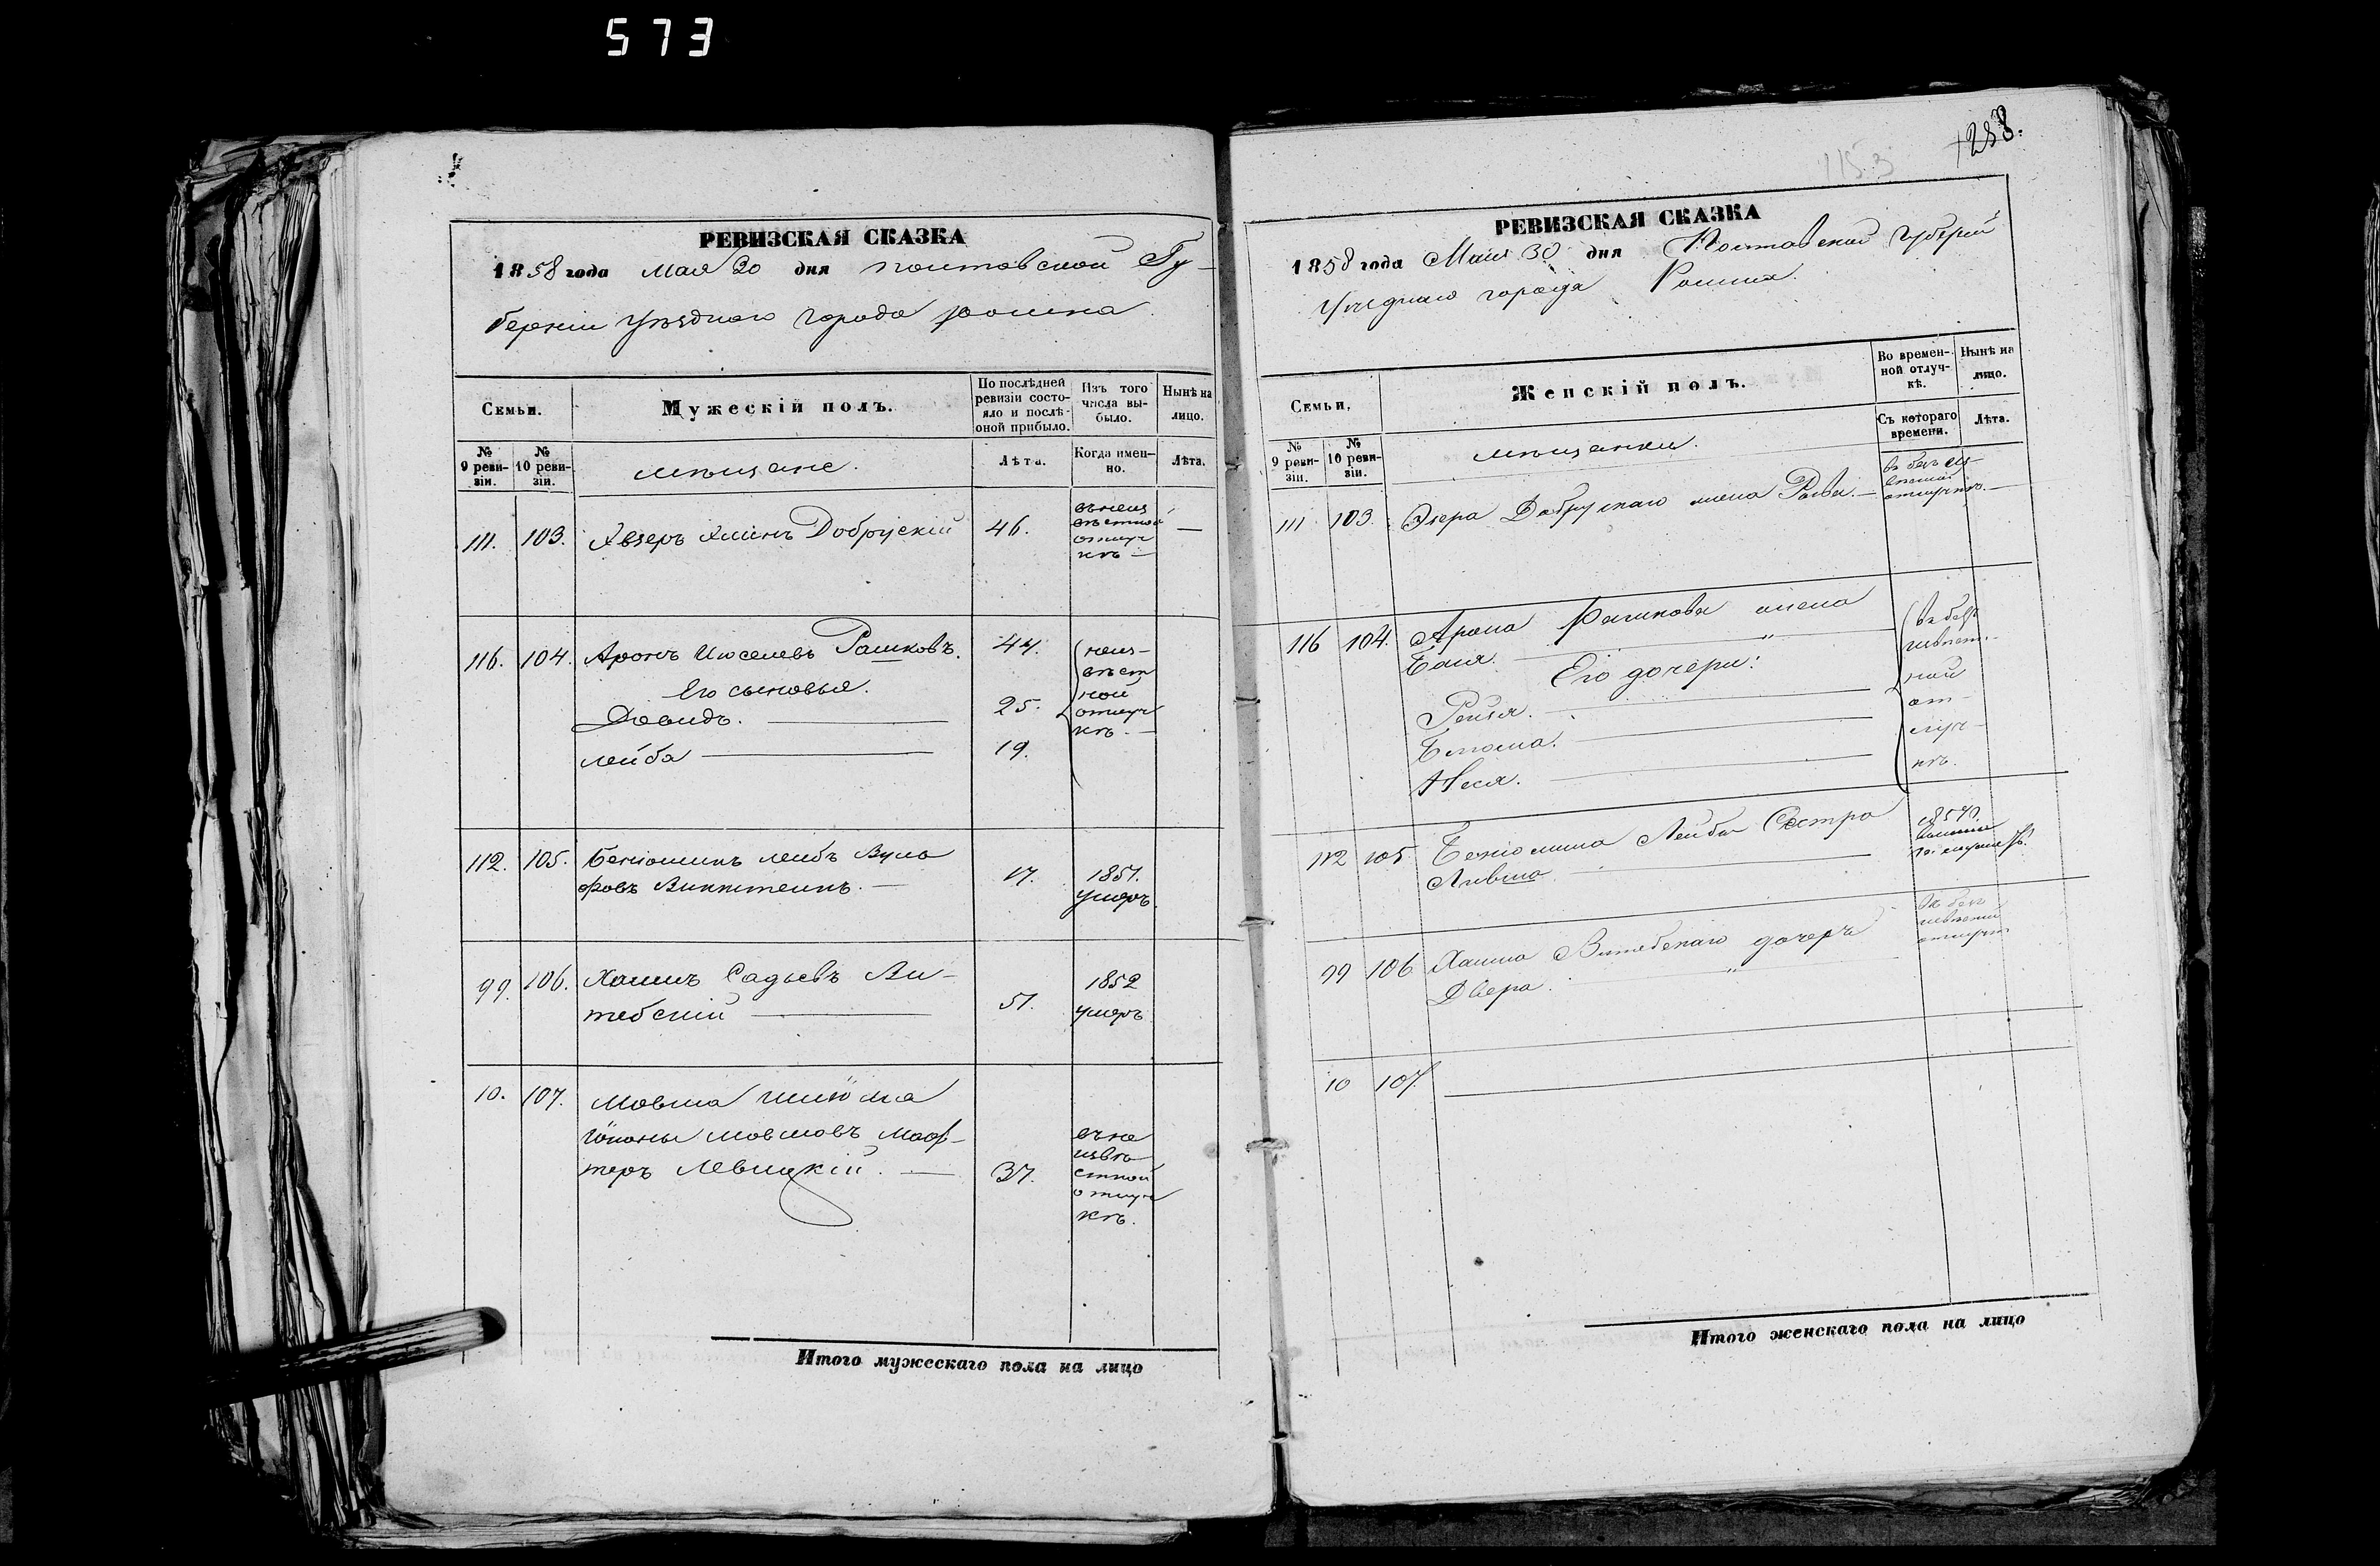 573
РЕВИЗСКАЯ СКАЗКА
1858 года Мая 30 дня Полтавской Гу-
берніи Уѣзднаго Города Ромна.
Семьи.
Мужескій полъ.
По послѣдней ревизіи состо-
яло и послѣ-
оной прибыло.
Изъ того числа вы-
было.
Нынѣ на лицо.
№ 9 реви-
зіи.
№ 10 реви-
зіи.
мѣщане.
Лѣта.
Когда имен-
но.
Лѣта.
111. 103. Добрускій 46.
въ неиз
вѣстной
отлуч
кѣ —
116. 104. Аронъ Иоселевъ Рашковъ. 44.
Его сыновья.
Довидъ. 25.
Лейба 19.
неиз-
вѣст
ной
отлуч
кѣ. —
112. 105. Беніоминъ Лейбъ Вуль
фовъ 17. 1857.
умеръ.
99. 106. Хаимъ Садьевъ Ви-
тебскій 51. 1852
умеръ
10. 107. Мовша Шлiома
Мовшовъ Маф-
теръ Левицкій. — 37.
въ не
извѣ
стной
отлуч
кѣ.
Итого мужескаго пола на лицо
1153
283.
РЕВИЗСКАЯ СКАЗКА
1858 года Мая 30 дня Полтавской Губерніи
Уѣзднаго города Ромна.
Семьи,
Женскій полъ.
Во времен-
ной отлуч-
кѣ.
Нынѣ на лицо.
№ 9 реви-
зіи.
№ 10 реви-
зіи.
мѣщанки.
Съ котораго времени.
Лѣта.
111 103. Добрускаго жена —
отлучкѣ. —
116 104. Арона Рашкова жена
Бася. "
Его дочери:
Рейзя.
Неся.
въ безъ
извѣст-
ной
от-
луч-
кѣ.
112 105 Беніомина Лейба Сестра
1857
99 106 Хаима Витебскаго дочерь
Двера. "
10 107.
Итого женскаго пола на лицо